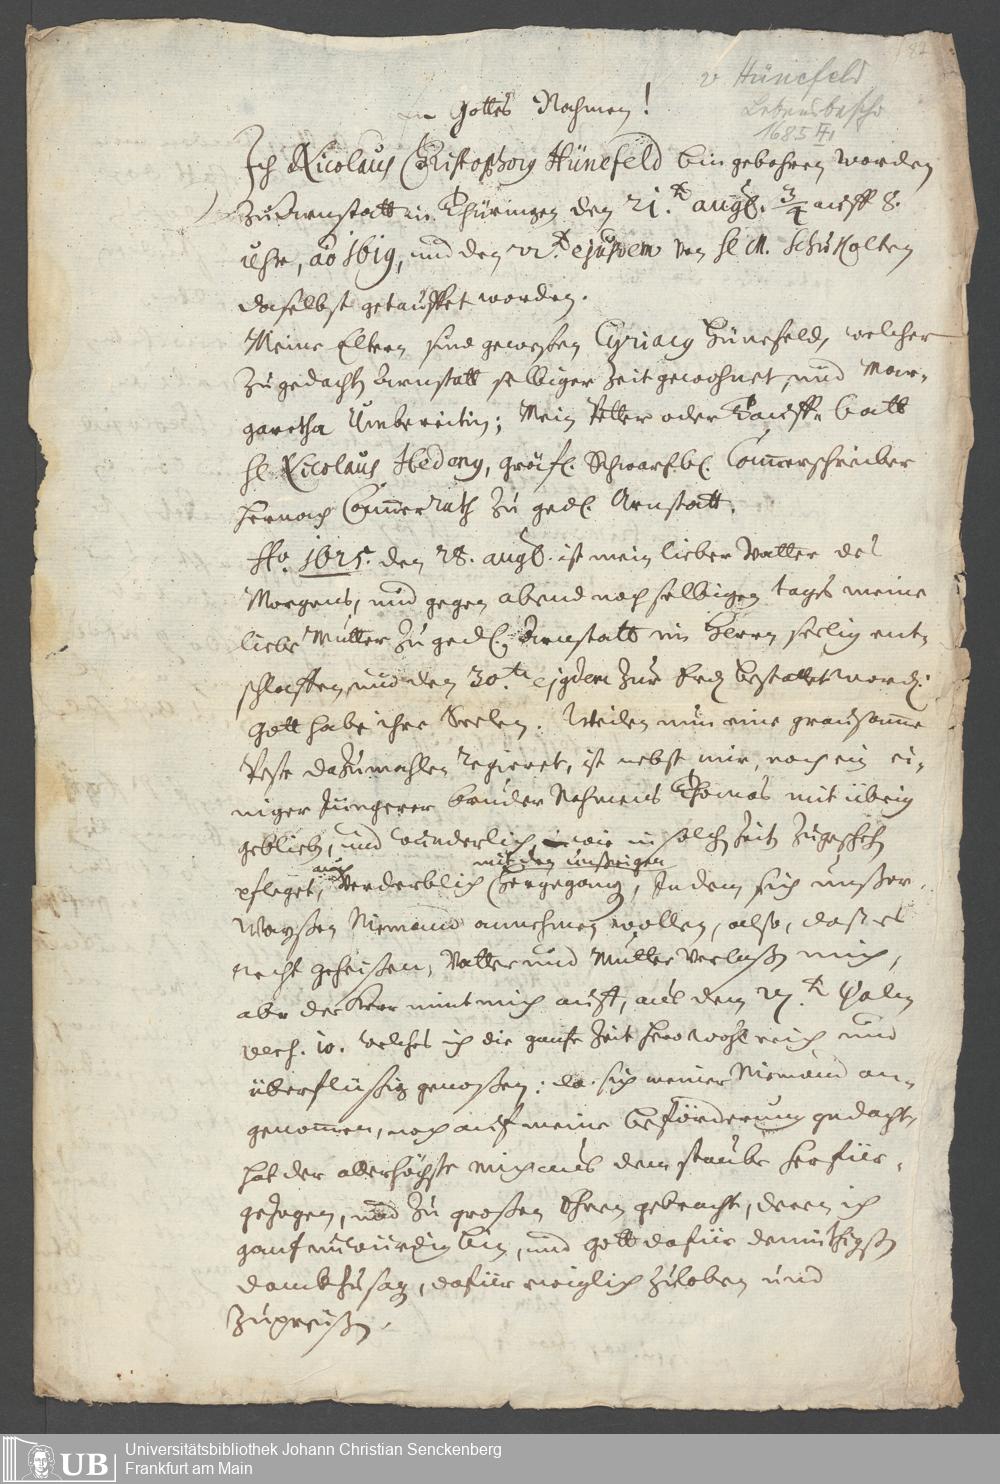 v Hünefeld
Lebensbeschr
1685 ff
In Gottes Nahmen!
Ich Nicolaus Christophorg Hünefeld bin gebohren worden
zu Arnstatt in Thüringen den 21.t augl. 3/4 auff 8.
uhr, aõ 1619, und den ejusdem von hl M. Schukelten
daselbst getauffet worden.
Meine Eltern sind gewesen Cyriacg Hünefeld, welcher
zu gedacht Arnstatt selbiger Zeit gewohnet, und Mar-
garetha Umbereitin; Mein Petter oder Tauff- batt
hl Nicolaus Hedeng, gräfl. Schwarzb. Cammerschreiber
hernach Cammerrath zu gedl. Arnstatt.
Ao. 1625. den 28. augl. ist mein lieber Vatter des
Morgens, und gegen abend noch selbigen tages meine
liebe Mutter zu gedl. Arnstatt im Herrn seelig ent-
schlaffen, und den 30.t ejgdem zur Erd bestattet word.
Gott habe ihre Seelen. Weilen nun eine grausamme
Peste dazumahlen regieret, ist nebst mir, noch ein ei-
niger Jüngerer bruder Nahmens Thomas mit übrig
geblieb, und wunderlich, wie in solch Zeit zugescheh
pfleget, auch Verderblich mit den unsrigen hergegang, Indem sich unser
Waysen Niemand annehmen wollen, also, daß es
recht geheißen, Vatter und Mutter verlaß mich,
aber der Herr nimt mich auff, aus dem 27.t Psalm
vers. 10. welches ich die gantze Zeit hero wohl reich und
überflüßig genoßen: da sich meiner Niemand an-
genommen, noch auf meine beförderung gedacht,
hat der allerhöchste mich aus dem staube herfür-
gezogen, und zu großen Ehren gebracht, deren ich
gantz unwürdig bin, und gott dafür demüthigst
danckh sag, dafür ewiglich zu loben und
zu preißen.
UB
Universitätsbibliothek Johann Christian Senckenberg
Frankfurt am Main